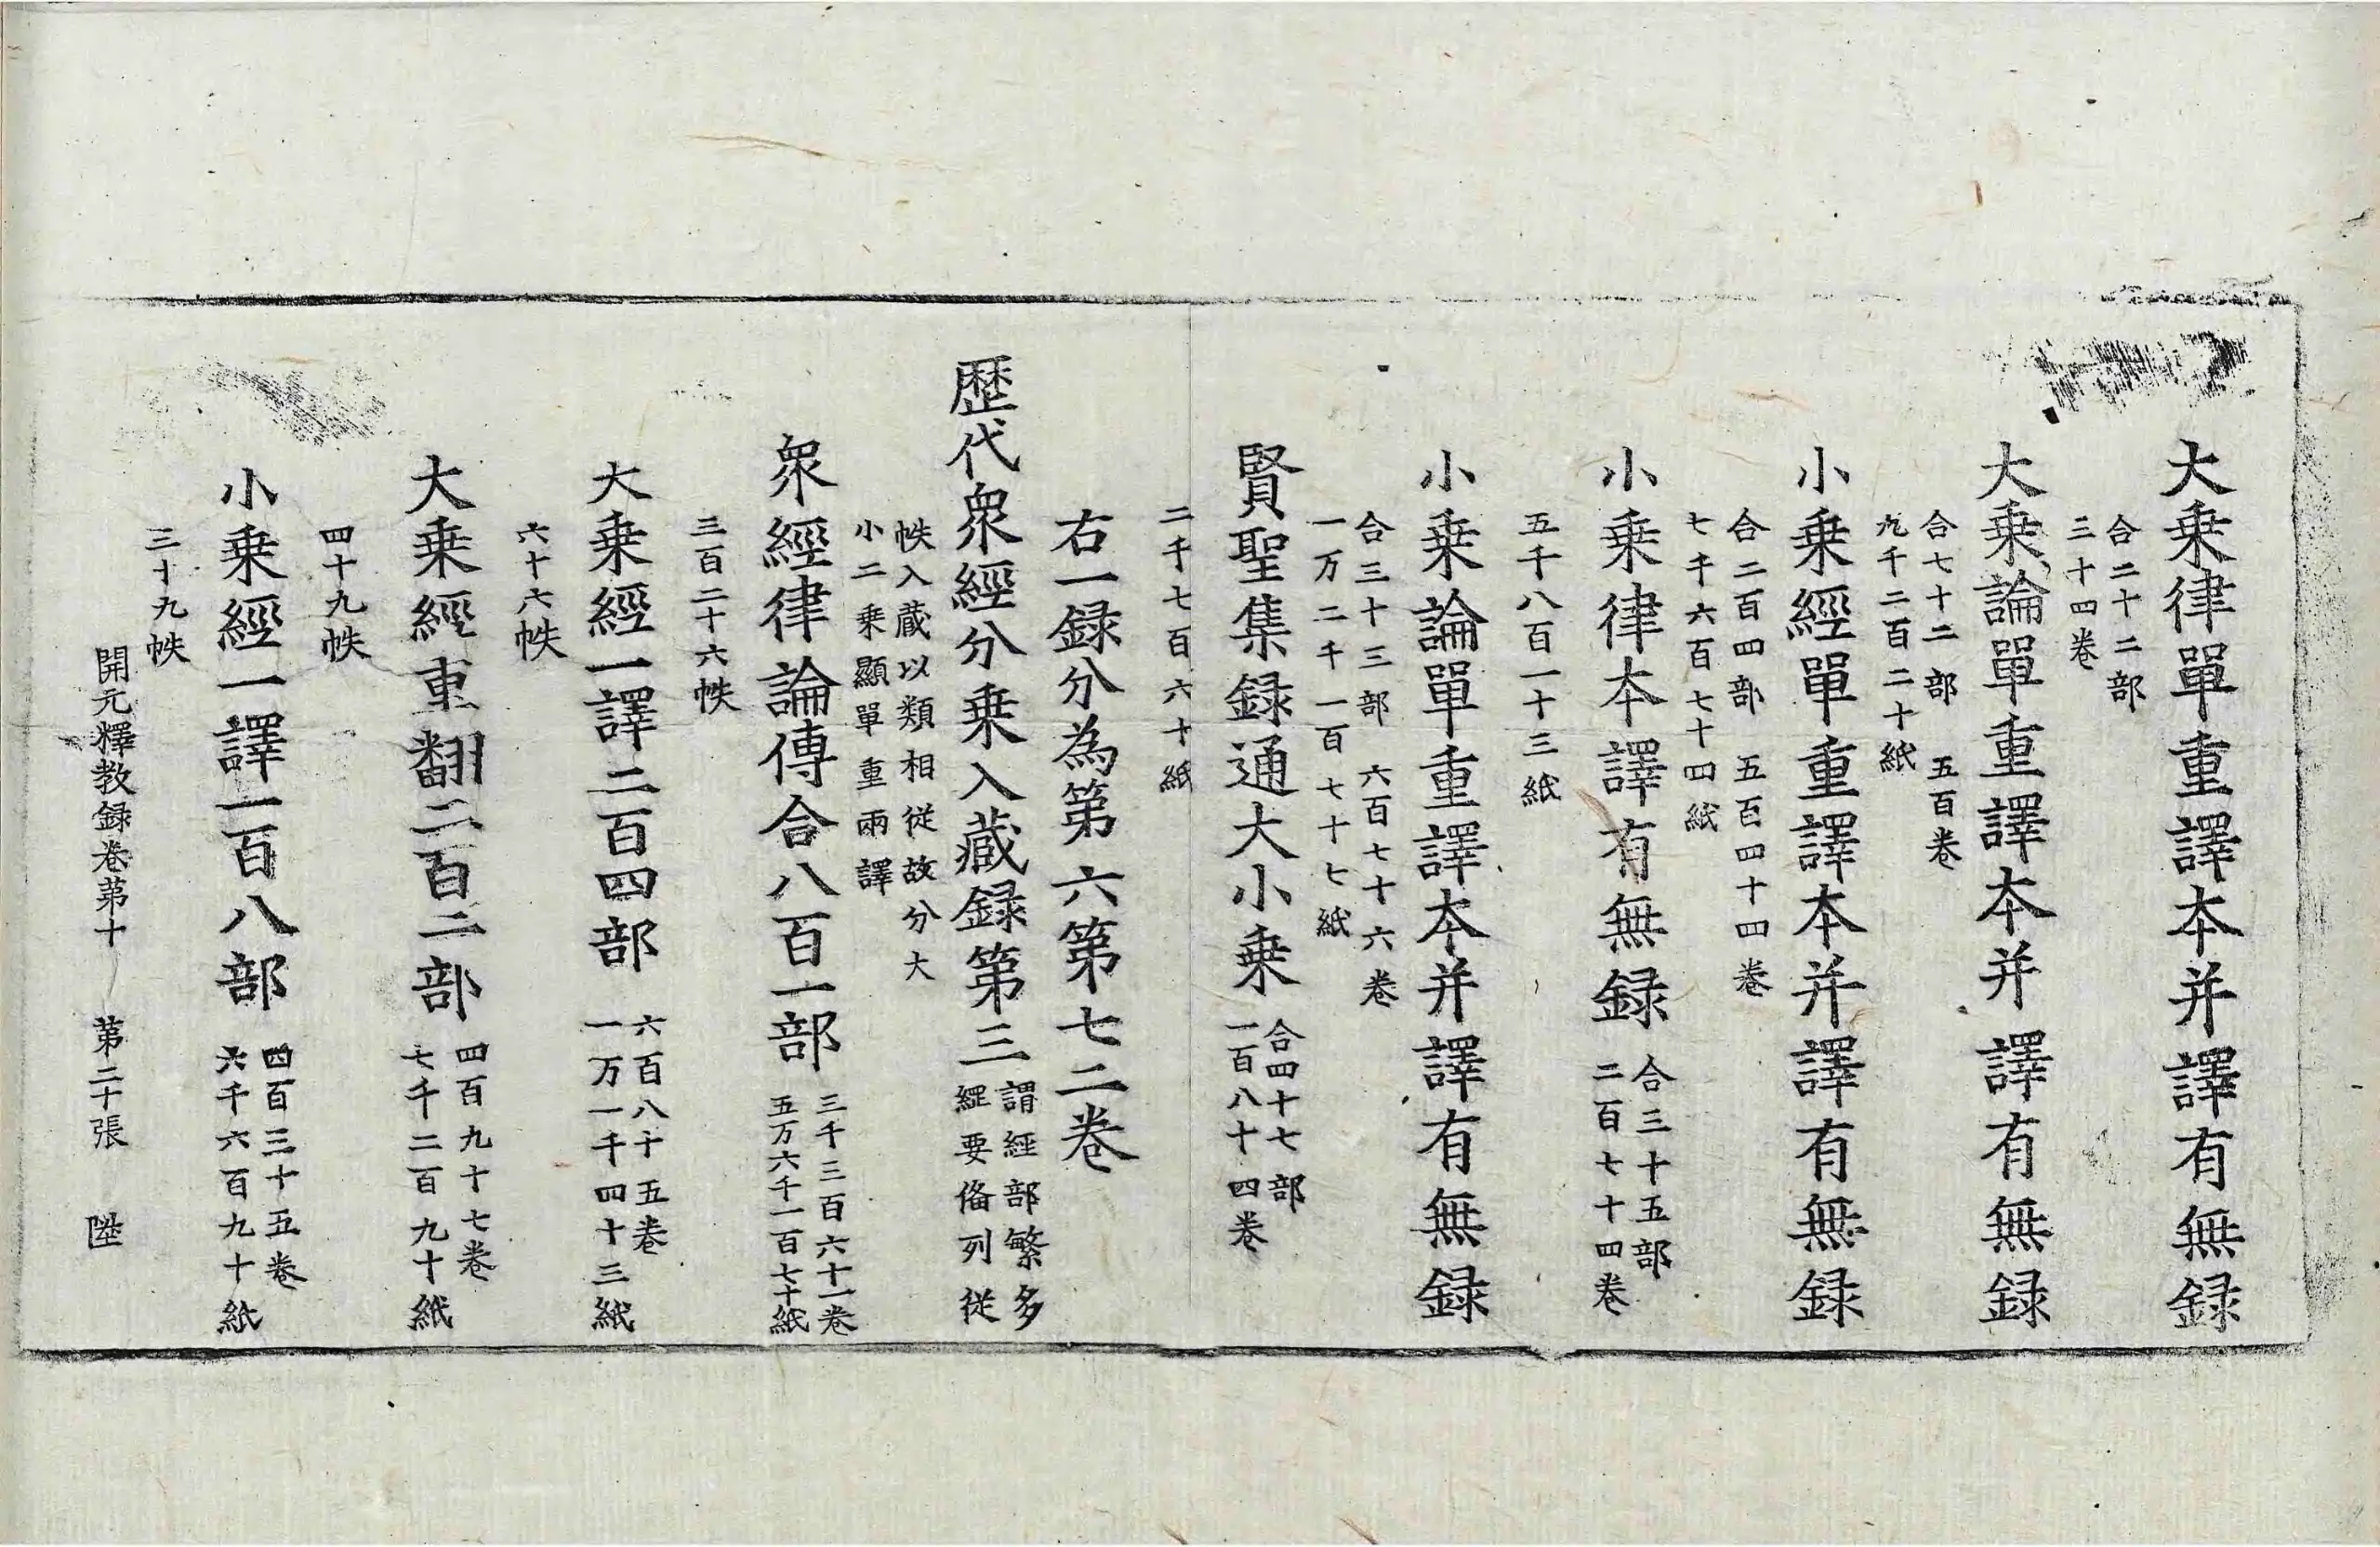 大乗律單重譯本并譯有無録
合二十二部
三十四卷
大乗論單重譯本并譯有無録
合七十二部 五百卷
九千二百二十紙
小乗經單重譯本并譯有無録
合二百四部 五百四十四卷
七千六百七十四紙
小乗律本譯有無録
合三十五部
二百七十四卷
五千八百一十三紙
小乗論單重譯本并譯有無録
合三十三部 六百七十六卷
一万二千一百七十七紙
賢聖集録通大小乗
合四十七部
一百八十四卷
二千七百六十紙
右一録分為第六第七二卷
歷代衆經分乗入蔵録第三
謂經部繁多
經要俻列從
帙入蔵以類相從故分大
小二乗顯單重兩譯
衆經律論傳合八百一部
三千三百六十一卷
五万六千一百七十紙
三百二十六帙
大乗經一譯二百四部
六百八十五卷
一万一千四十三紙
六十六帙
大乗經重翻二百二部
四百九十七卷
七千二百九十紙
四十九帙
小乗經一譯一百八部
四百三十五卷
六千六百九十紙
三十九帙
開元釋教録卷苐十 苐二十張 陞